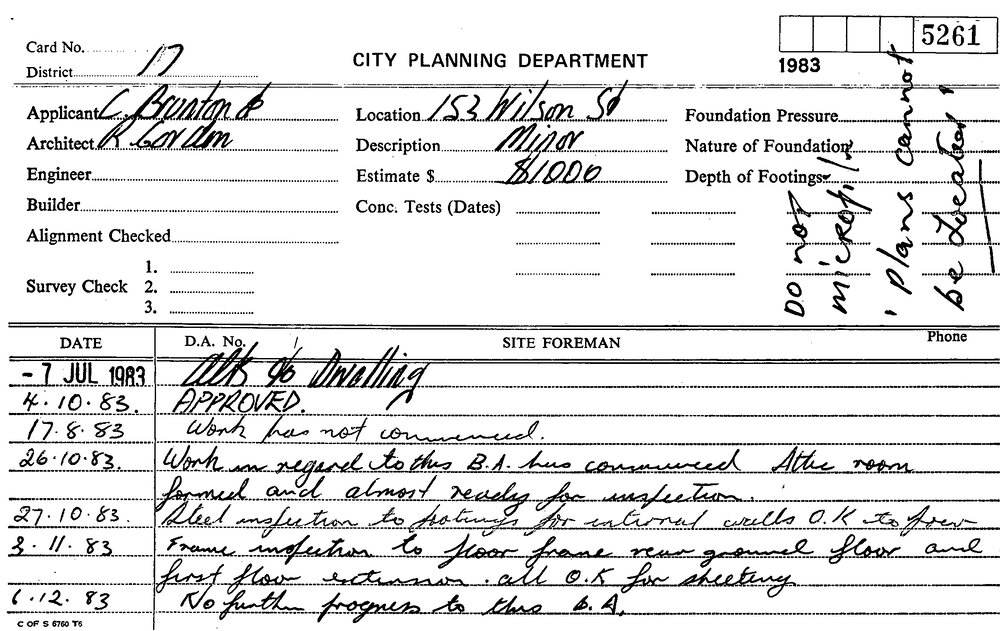 5261
Card No.
CITY PLANNING DEPARTMENT
1983
District 17
Applicant C. Brunton &
Location 153 Wilson St
Foundation Pressure
Architect R. Gordon
Description Minor
Nature of Foundation
Engineer
Estimate $ $1000
Depth of Footings
Builder
Conc. Tests (Dates)
Alignment Checked
1.
Survey Check 2.
3.
Do not
microfilm
plans cannot
be located
DATE D.A. No. SITE FOREMAN Phone
- 7 JUL 1983 Alts % Dwelling
4.10.83. APPROVED.
17.8.83 Work has not commenced.
26.10.83. Work in regard to this B.A. has commenced Attic room
formed and almost ready for inspection.
27.10.83. Steel inspection to footings for internal walls O.K to pour
3.11.83 Frame inspection to floor frame rear ground floor and
first floor extension. all O.K for sheeting
6.12.83 No further progress to this B.A.
C OF S 6760 T6